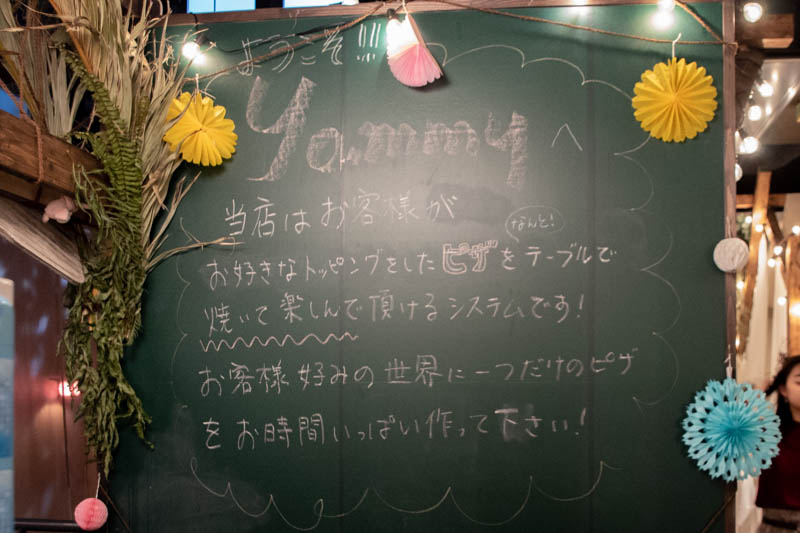 ようこそ!!!
Yammy へ
当店はお客様が
なんと!
お好きなトッピングをしたピザをテーブルで
焼いて楽しんで頂けるシステムです!
お客様好みの世界に一つだけのピザ
をお時間いっぱい作って下さい!